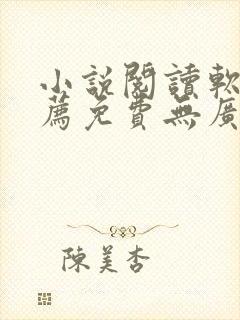 小說閱讀軟
薦免費無廣
陳美杏